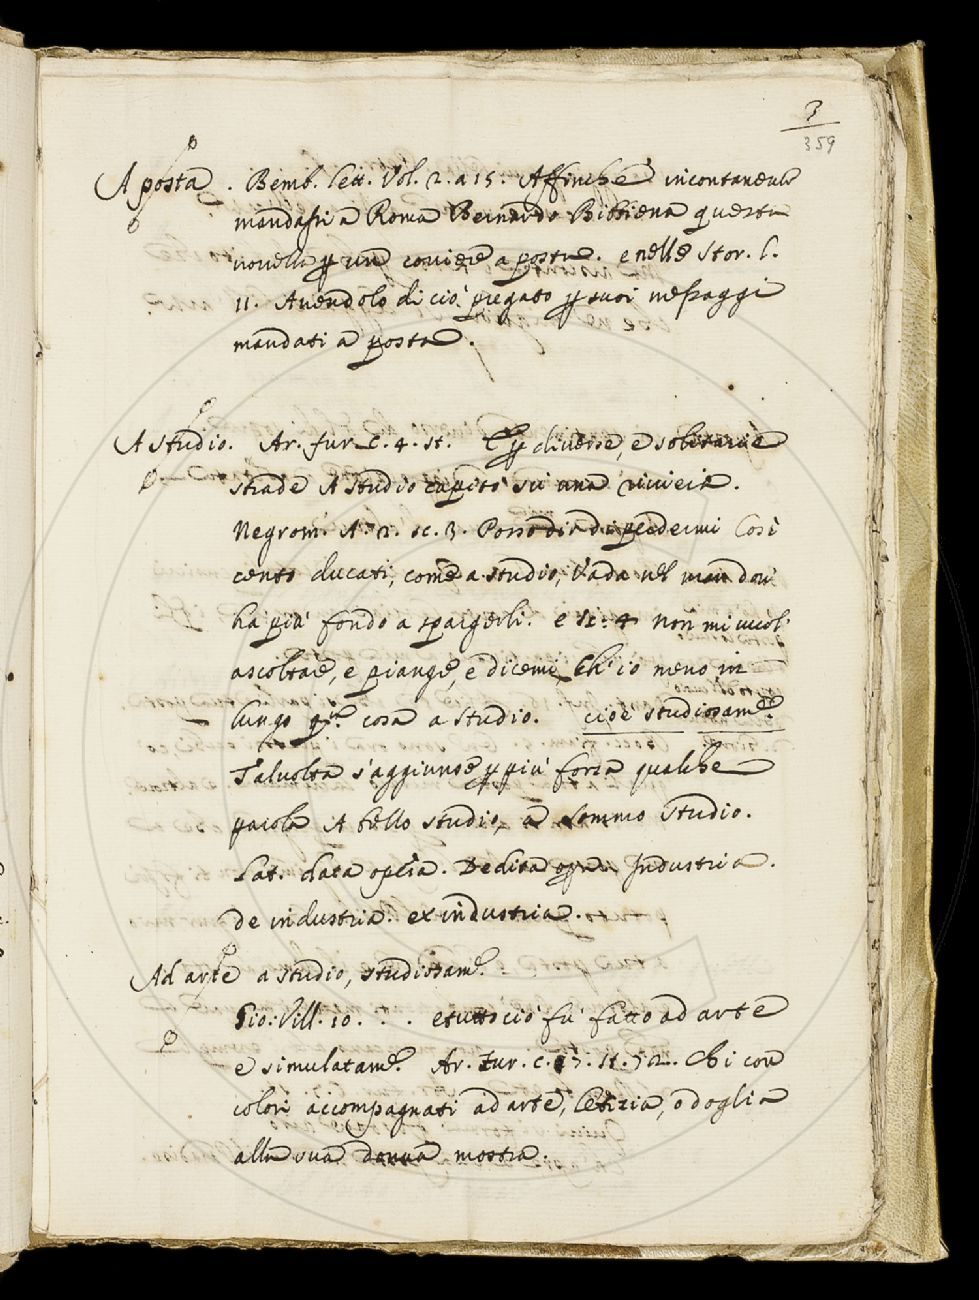 3
359
A posta. Bemb. lett. Vol. 2. a 15. Affinche incontanente
mandassi a Roma Bernardo Bibbiena questa
novella p un corriere a posta. e nelle Stor. l.
11. Avendolo di ciò pregato p suoi messaggi
mandati a posta.
A studio. Ar. fur. c. 4. st. E p diverse, e solitarie
strade A studio capitò su una riviera.
Negrom. A. 2. sc. 3. Posso dir di perdermi Così
cento ducati, come a studio, vada nel
ha più fondo a spargerli. e sc. 4 non mi vuol
ascoltare, e piange, e dicemi, Ch'io meno in
lungo q.ta cosa a studio. cioè studiosam.e
Talvolta s'aggiunge p più forza qualche
parola A bello studio, a sommo studio.
Lat. data opera. Dedita opera Industria.
de industria. ex industria.
Ad arte a studio, studiosam.e
Gio: Vill. 10. . . e tutto ciò fu fatto ad arte
e simulatam.e Ar. Fur. c. st. 52. Chi con
colori accompagnati ad arte, letizia, o doglia
alla sua donna mostra.